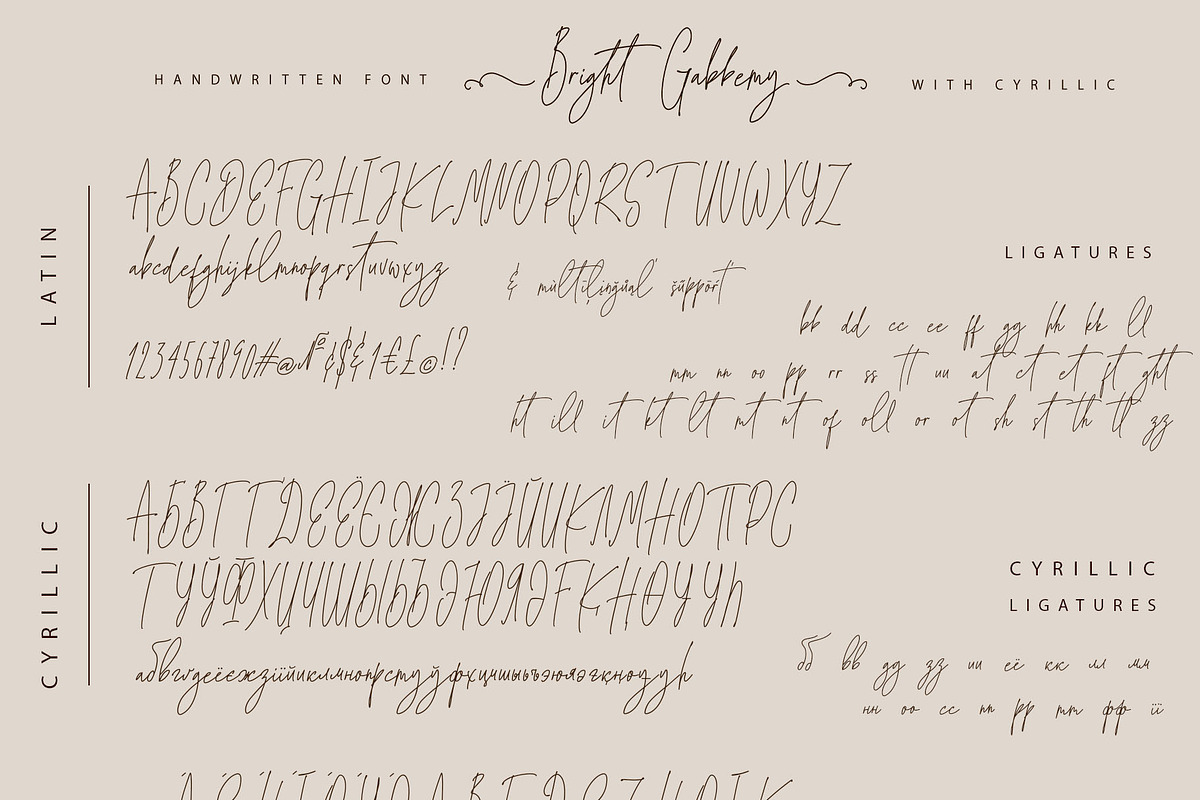 HANDWRITTEN FONT
Bright Gabbemy
WITH CYRILLIC
LATIN
ABCDEFGHIJKLMNOPQRSTUVWXYZ
abcdefghijklmnopqrstuvwxyz
& mùltïlingüąl šüppört
1234567890#@№¢$&1€£©!?
LIGATURES
bb dd cc ee ff gg hh kk ll
mm nn oo pp rr ss tt uu at ct et ft ght
ht ill it kt lt mt nt of oll or ot sh st th tl zz
CYRILLIC
АБВГҐДЕЁЄЖЗІЇЙИКЛМНОПРС
ТУЎФХЦЧШЫЬЪЭЮЯӘҒҚҢӨҰҮҺ
абвгґдеёєжзіїйиклмнопрстуўфхцчшыьъэюяәғқңөұүһ
CYRILLIC
LIGATURES
бб вв дд зз ии её кк лл мм
нн оо сс пп рр тт фф її